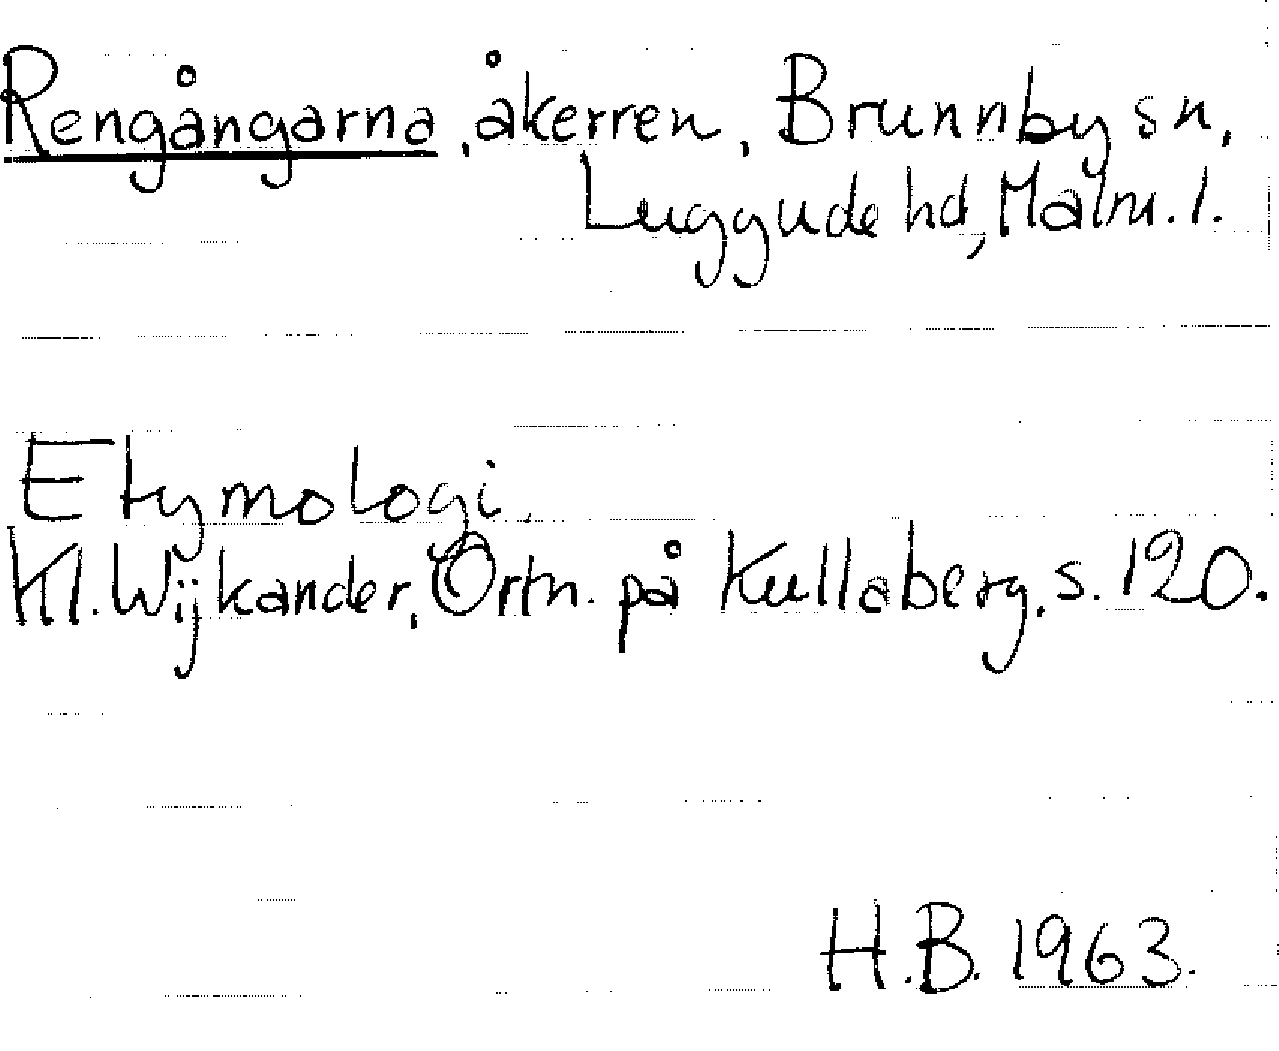 Rengångarna, åkerren, Brunnby sn,
Luggude hd, Malm. l.
Etymologi.
Kl. Wijkander, Ortn. på Kullaberg, s. 120.
H.B. 1963.